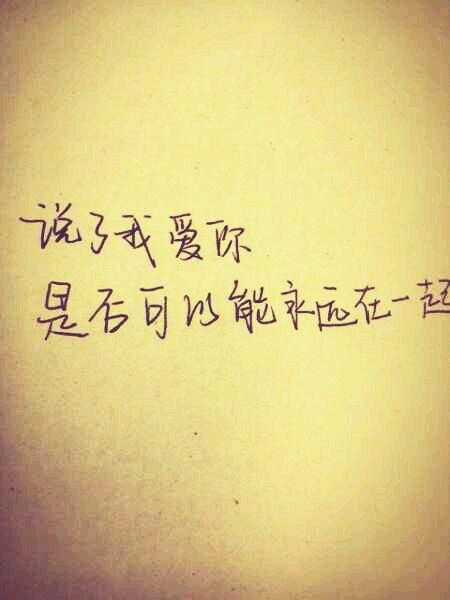 说了我爱你
是否可以能永远在一起